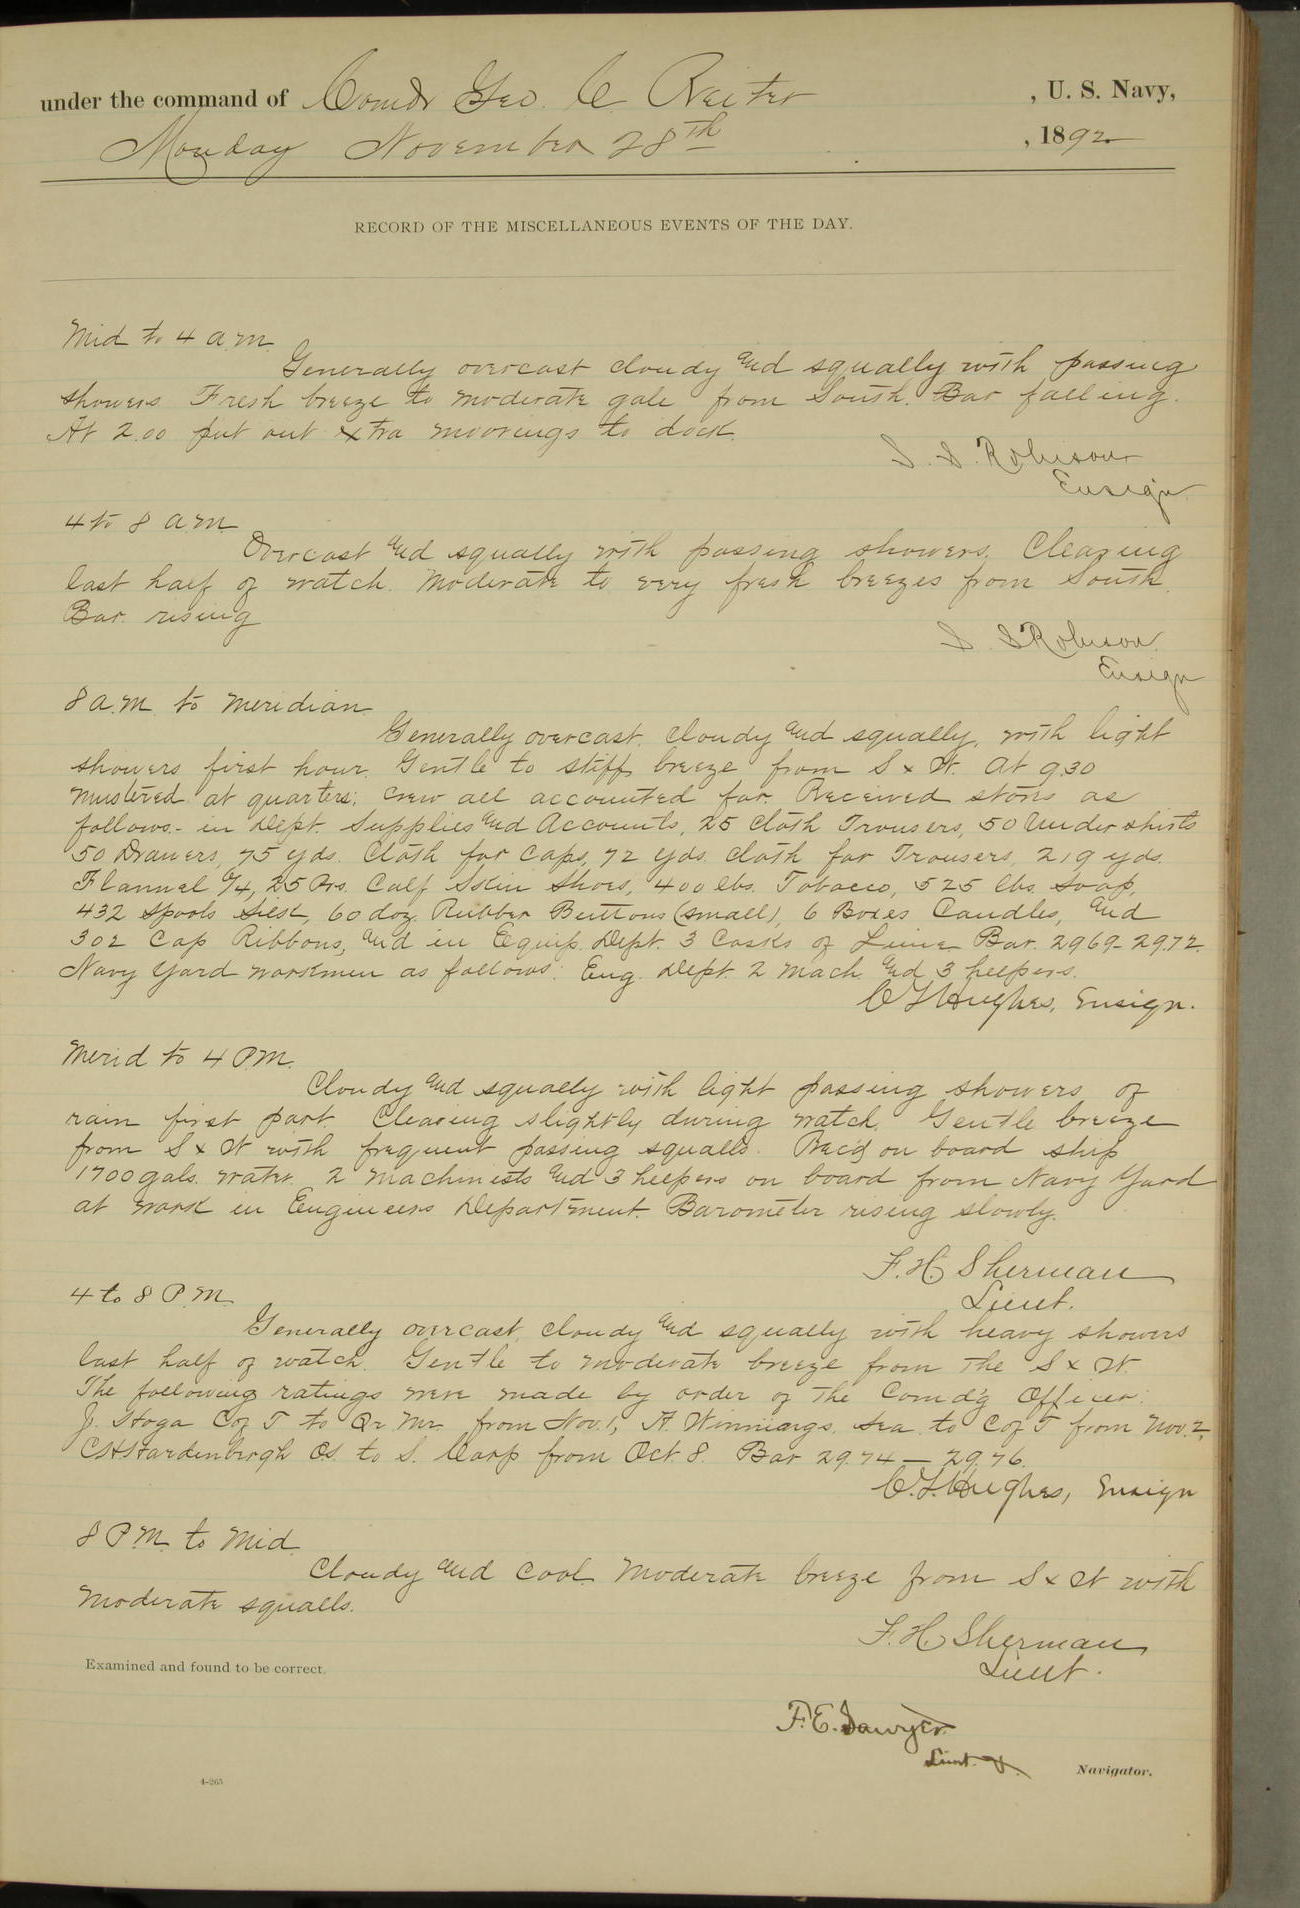 under the command of Comdr Geo. C. Reiter, U. S. Navy,
Monday November 28th, 1892
RECORD OF THE MISCELLANEOUS EVENTS OF THE DAY.
Mid to 4 a.m.
Generally overcast cloudy and squally with passing
showers Fresh breeze to moderate gale from South. Bar falling.
At 2.00 put out extra moorings to dock.
S. S. Robison
Ensign
4 to 8 a.m.
Overcast and squally with passing showers. Clearing
last half of watch. Moderate to very fresh breezes from South.
Bar. rising
S. S Robison.
Ensign
8 a.m. to Meridian.
Generally overcast, cloudy and squally, with light
showers first hour. Gentle to stiff breeze from S x W. At 9.30
mustered at quarters; crew all accounted for. Received stores as
follows.- in Dept. Supplies and Accounts, 25 Cloth Trousers, 50 Undershirts
50 Drawers, 75 yds. Cloth for Caps, 72 yds. cloth for Trousers, 219 yds.
Flannel 6/4, 25 Prs. Calf Skin Shoes, 400 lbs. Tobacco, 525 lbs. soap,
432 spools silk, 60 doz. Rubber Buttons (small), 6 Boxes Candles, and
302 Cap Ribbons, and in Equip. Dept. 3 Casks of Lime Bar. 29.69-29.72.
Navy Yard workmen as follows: Eng. Dept. 2 Mach. and 3 helpers.
C F Hughes, Ensign.
Merid to 4 P.M.
Cloudy and squally with light passing showers of
rain first part. Clearing slightly during watch. Gentle breeze
from S x W with frequent passing squalls. Rec'd on board ship
1700 gals. water. 2 Machinists and 3 helpers on board from Navy Yard
at work in Engineers Department. Barometer rising slowly.
F. H. Sherman
Lieut.
4 to 8 P.M.
Generally overcast, cloudy and squally with heavy showers
last half of watch. Gentle to moderate breeze from the S x W.
The following ratings were made by order of the Comd'g Officer:
J. Hoga C of T to Qr Mr from Nov. 1, A. Winnings. Sea to C of T from Nov. 2,
C H Hardenbergh OS. to S. Carp from Oct. 8. Bar 29.74 — 29.76.
C. F. Hughes, Ensign
8 P.M. to Mid.
Cloudy and cool. Moderate breeze from S x W with
moderate squalls.
F. H. Sherman
Lieut.
Examined and found to be correct.
F. E. Sawyer
Lieut. &
Navigator.
4-265